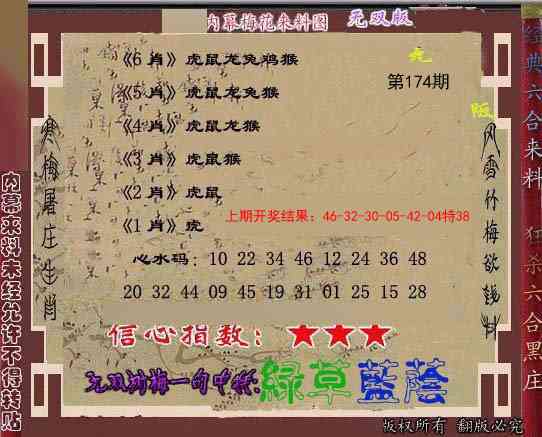 内幕梅花来料图 无双版
《6 肖》虎鼠龙兔鸡猴
第174期
《5 肖》虎鼠龙兔猴
《4 肖》虎鼠龙猴
《3 肖》虎鼠猴
《2 肖》虎鼠
《1 肖》虎
上期开奖结果：46-32-30-05-42-04特38
心水码：10 22 34 46 12 24 36 48
20 32 44 09 45 19 31 01 25 15 28
信心指数：★★★
绿草蓝荫
寒梅屠庄生肖
风雪竹梅欲钱料
内幕来料未经允许不得转贴
经典六合来料 狂杀六合黑庄
版权所有 翻版必究